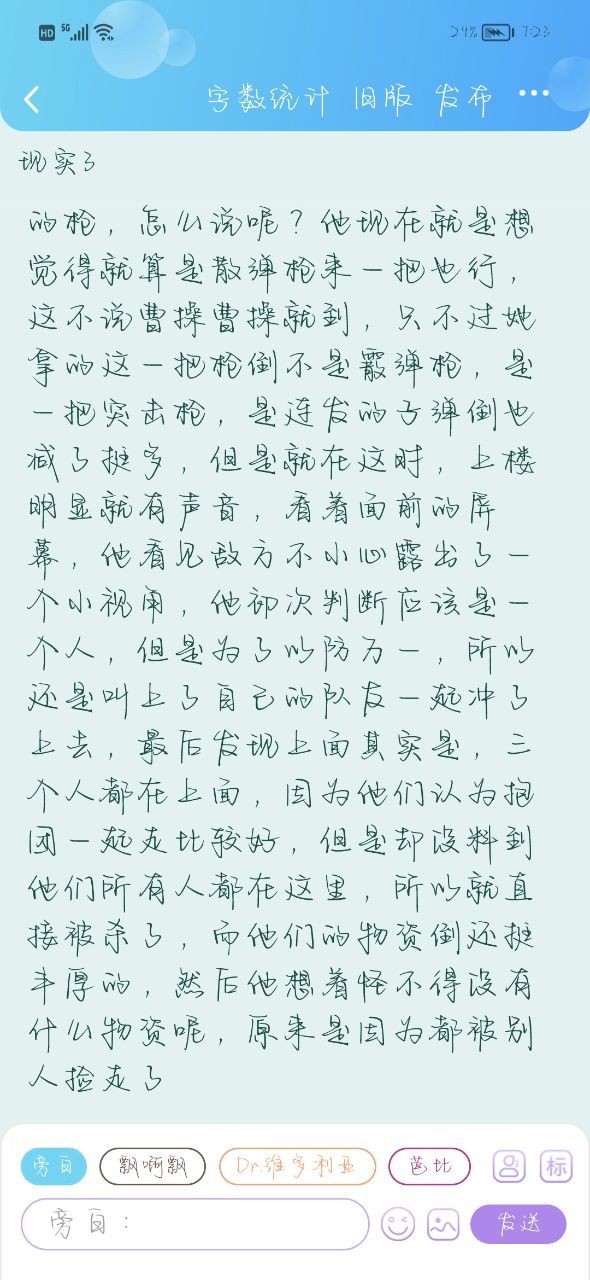 HD 5G 29% 7:23
字数统计 旧版 发布
现实了
的枪，怎么说呢？他现在就是想
觉得就算是散弹枪来一把也行，
这不说曹操曹操就到，只不过她
拿的这一把枪倒不是霰弹枪，是
一把突击枪，是连发的子弹倒也
减了挺多，但是就在这时，上楼
明显就有声音，看着面前的屏
幕，他看见敌方不小心露出了一
个小视角，他初次判断应该是一
个人，但是为了以防万一，所以
还是叫上了自己的队友一起冲了
上去，最后发现上面其实是，三
个人都在上面，因为他们认为抱
团一起走比较好，但是却没料到
他们所有人都在这里，所以就直
接被杀了，而他们的物资倒还挺
丰厚的，然后他想着怪不得没有
什么物资呢，原来是因为都被别
人捡走了
旁白 飘啊飘 Dr.维多利亚 芭比 标
旁白： 发送